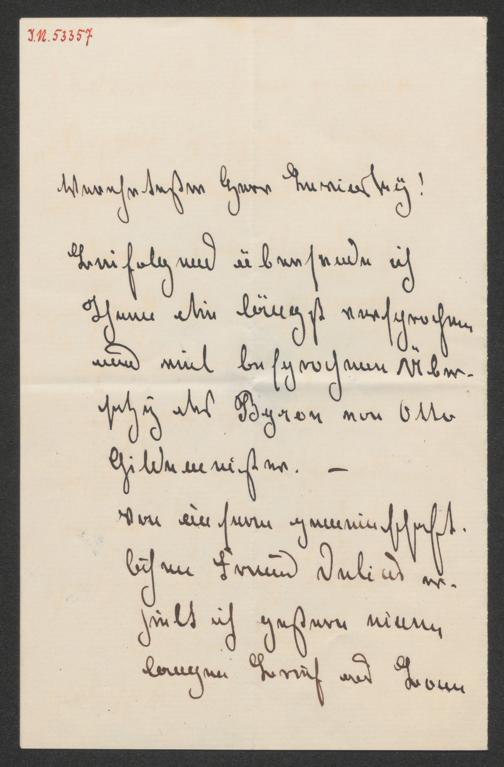 I.N. 53357
Verehrtester Herr
Beifolgend übersende ich
Ihnen die längst versprochene
und viel besprochene Über-
setzg des Byron von Otto
Gildemeister. —
Von unserem gemeinschaft-
lichen Freund Julius er-
hielt ich gestern einen
langen Brief aus Bonn